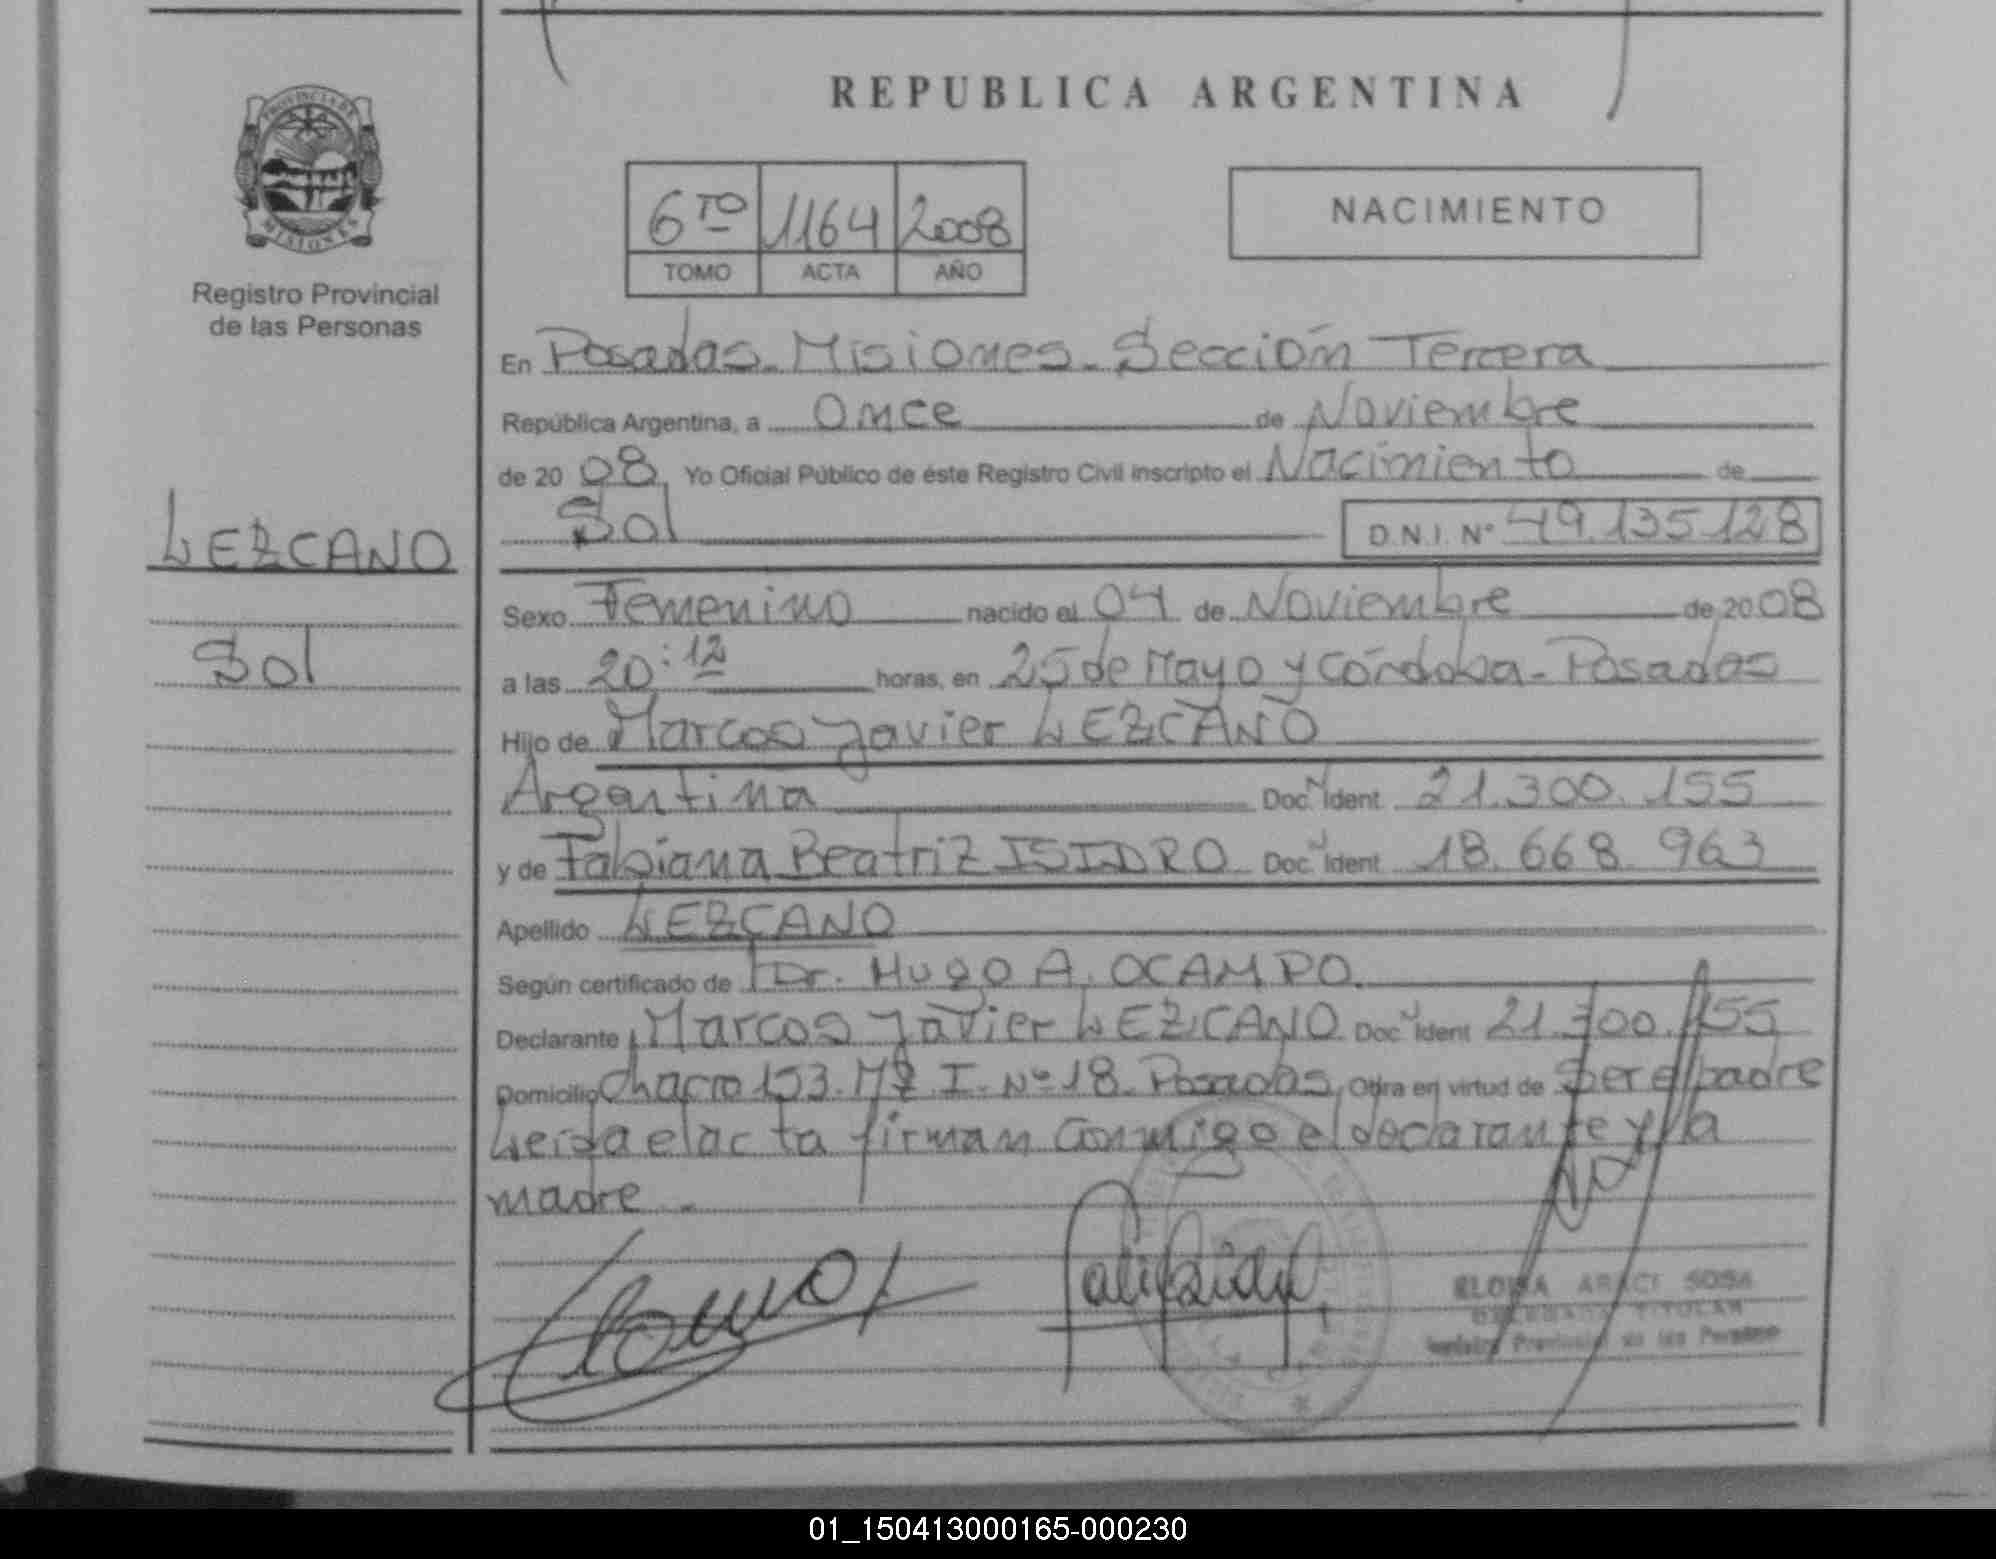 REPUBLICA ARGENTINA
PROVINCIA DE
MISIONES
Registro Provincial
de las Personas
6TO 1164 2008
TOMO ACTA AÑO
NACIMIENTO
LEZCANO
Sol
En Posadas-Misiones-Sección Tercera
República Argentina, a Once de Noviembre
de 2008 Yo Oficial Público de éste Registro Civil inscripto el Nacimiento de
Sol D.N.I. N° 49.135.128
Sexo Femenino nacido el 04 de Noviembre de 2008
a las 20:12 horas, en 25 de Mayo y Córdoba-Posadas
Hijo de Marcos Javier LEZCANO
Argentina Doc. Ident 21.300.155
y de Fabiana Beatriz ISIDRO Doc. Ident 18.668.963
Apellido LEZCANO
Según certificado de Dr. Hugo A. OCAMPO.
Declarante Marcos Javier LEZCANO Doc. Ident 21.300.155
Domicilio Chacra 153. Mz. I. N° 18. Posadas Obra en virtud de Ser el padre
Leída el acta firman conmigo el declarante y la
madre.-
ELOISA ARACI SOSA
DELEGADA TITULAR
Registro Provincial de las Personas
01_150413000165-000230